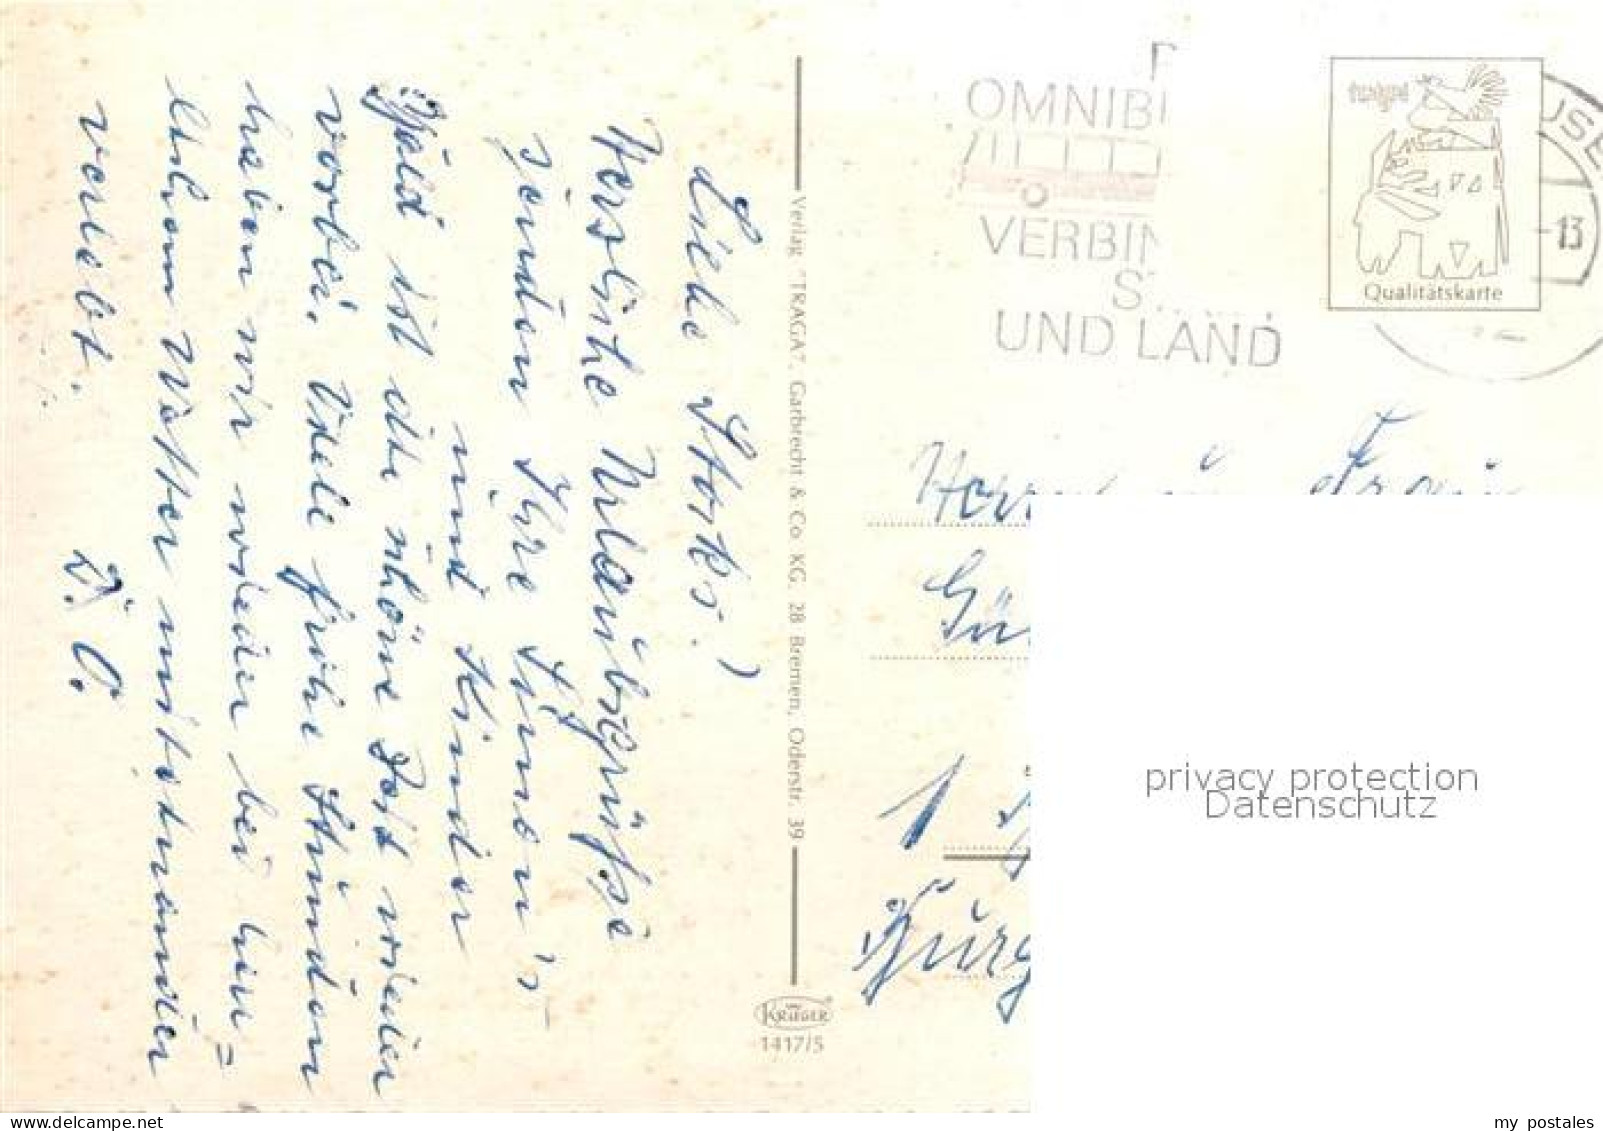 Liebe Storks!
Herzliche Urlaubsgrüße
senden Ihre Simon's
und Kinder
Bald ist die schöne Zeit wieder
vorbei. Viele frohe Stunden
haben wir wieder bei herr=
lichem Wetter miteinander
verlebt.
Verlag "TRAGA", Garbrecht & Co. KG, 28 Bremen, Oderstr. 39
KRÜGER
1417/5
OMNIB
VERBIN
UND LAND
13
Qualitätskarte
privacy protection
Datenschutz
my postales